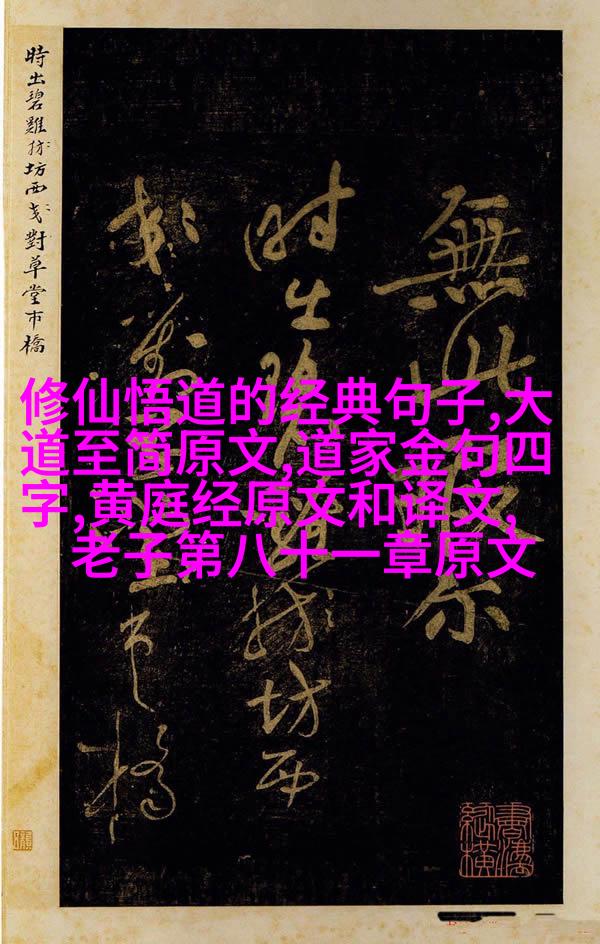 修仙悟道的经典句子,大
道至简原文,道家金句四
字,黄庭经原文和译文,
老子第八十一章原文
無此
時出碧雞坊西
對草堂市橋
時出碧雞坊西對草堂市橋